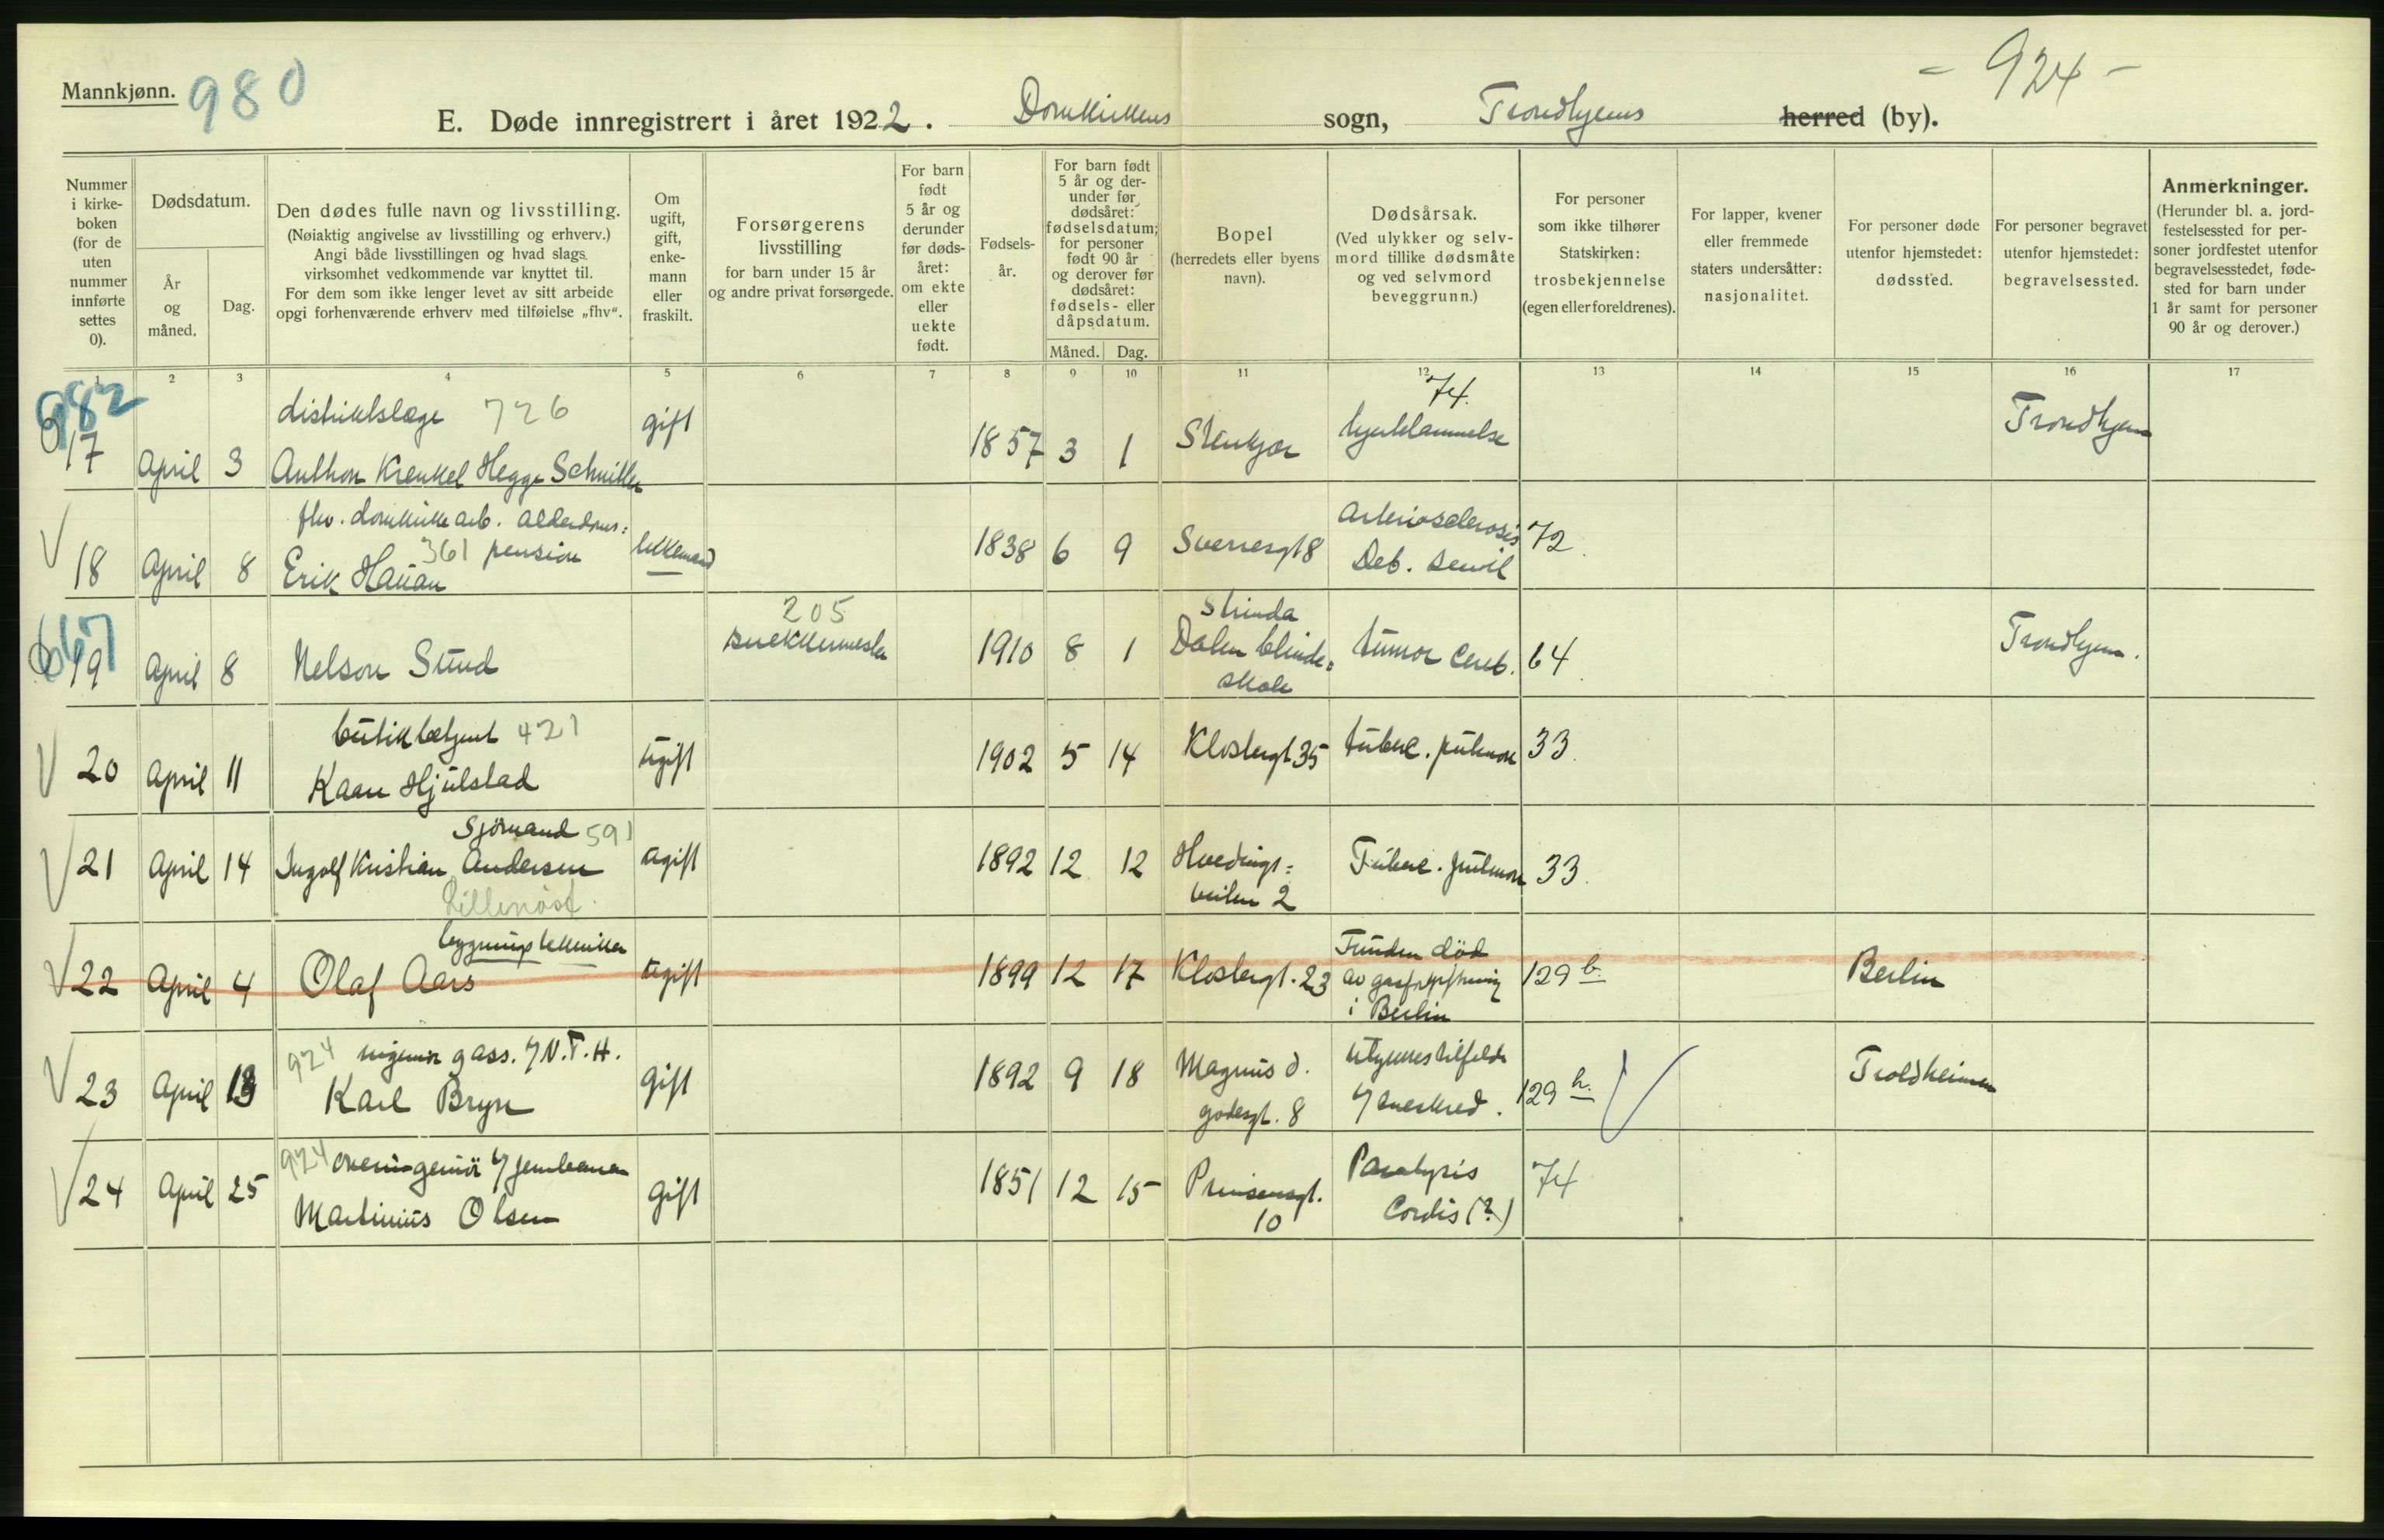 Mannkjønn.
980
- 924 -
E. Døde innregistrert i året 1922. Domkirkens sogn, Trondhjems herred (by).
Nummer i kirke-boken (for de uten nummer innførte settes 0).
Dødsdatum.
År og måned.
Dag.
Den dødes fulle navn og livsstilling.
(Nøiaktig angivelse av livsstilling og erhverv.)
Angi både livsstillingen og hvad slags
virksomhet vedkommende var knyttet til.
For dem som ikke lenger levet av sitt arbeide
opgi forhenværende erhverv med tilføielse „fhv“.
Om ugift, gift, enke-mann eller fraskilt.
Forsørgerens livsstilling
for barn under 15 år
og andre privat forsørgede.
For barn født 5 år og derunder før døds-året: om ekte eller uekte født.
Fødsels-år.
For barn født 5 år og der-under før dødsåret: fødselsdatum; for personer født 90 år og derover før dødsåret: fødsels- eller dåpsdatum.
Måned.
Dag.
Bopel
(herredets eller byens navn).
Dødsårsak.
(Ved ulykker og selv-mord tillike dødsmåte og ved selvmord beveggrunn.)
For personer som ikke tilhører Statskirken: trosbekjennelse (egen eller foreldrenes).
For lapper, kvener eller fremmede staters undersåtter: nasjonalitet.
For personer døde utenfor hjemstedet: dødssted.
For personer begravet utenfor hjemstedet: begravelsessted.
Anmerkninger.
(Herunder bl. a. jord-festelsessted for per-soner jordfestet utenfor begravelsesstedet, føde-sted for barn under 1 år samt for personer 90 år og derover.)
1 2 3 4 5 6 7 8 9 10 11 12 13 14 15 16 17
982
distriktslæge 726
74.
17 April 3 Anthon Krenkel Hegge Schnitler gift 1857 3 1 Stenkjær hjertelammelse Trondhjem
fhv. domkirke arb. alderdoms=
361 pension
18 April 8 Erik Hauan 1838 6 9 Sverresgt 8 Arteriosclerosis 72
Deb. senil
667
205
19 April 8 Nelson Stund snekkermester 1910 8 1 Strinda
Dalen blinde=
skole
tumor cereb. 64 Trondhjem.
butikbetjent 421
20 April 11 Kaare Hjulstad ugift 1902 5 14 Klostergt 35 tuberc. pulmon 33
Sjømand 591
21 April 14 Ingolf Kristian Andersen ugift 1892 12 12
veien 2
Tuberc. pulmon 33.
bygningstekniker
22 April 4 Olaf Aars ugift 1899 12 17 Klostergt. 23 Funden død
av gasforgiftning
i Berlin
129 b. Berlin
924 ingeniør g ass. v/ N.T.H.
23 April 13 Karl Bryn gift 1892 9 18 Magnus d.
godesgt. 8
Ulykkestilfelde
v/ sneskred. 129 h. Troldheimen
924 overingeniør v/ jernbanen
24 April 25 Martinius Olsen gift 1851 12 15 Prinsensgt.
10
Paralysis
Cordis (?) 74